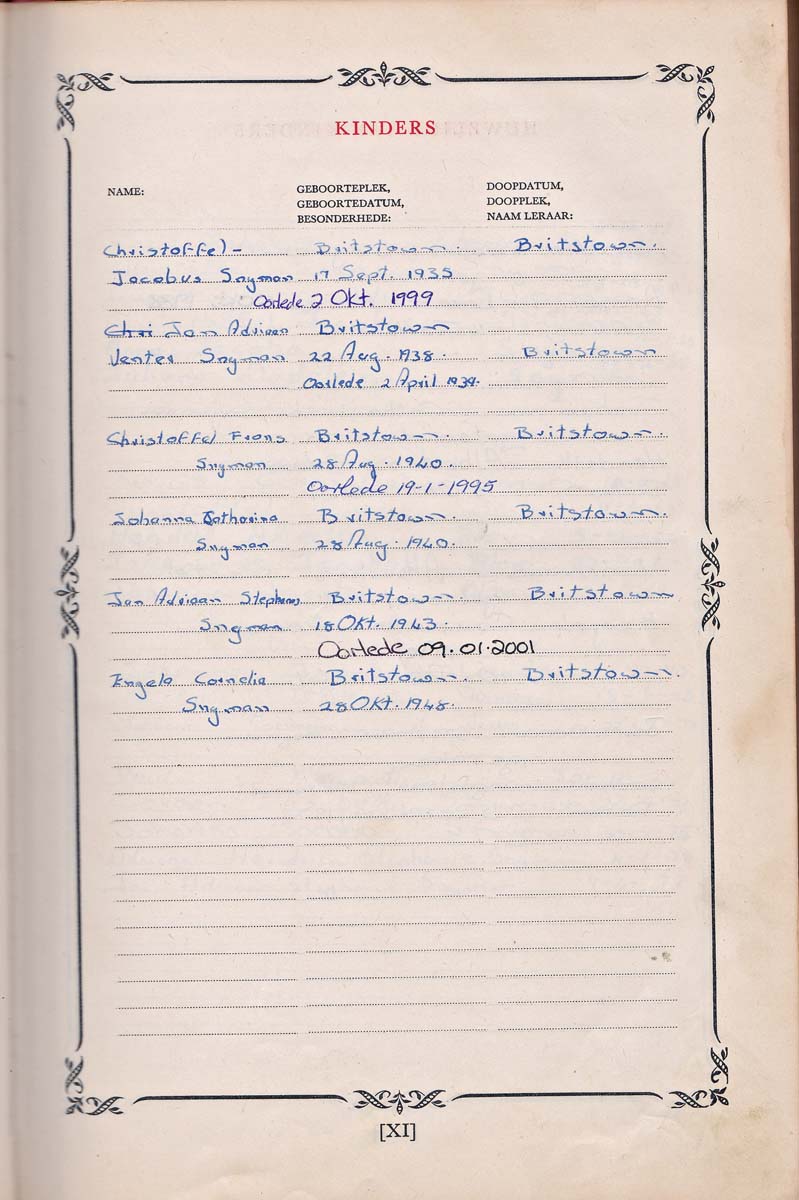 KINDERS
NAME: GEBOORTEPLEK, GEBOORTEDATUM, BESONDERHEDE: DOOPDATUM, DOOPPLEK, NAAM LERAAR:
Christoffel - Britstown. Britstown.
Jacobus Snyman 17 Sept. 1935
Oorlede 2 Okt. 1999
Chri Jan Adriaan Britstown
Venter Snyman 22 Aug. 1938. Britstown
Oorlede 2 April 1939.
Christoffel Frans Britstown. Britstown.
Snyman 28 Aug. 1940.
Oorlede 19-1-1995
Johanna Catharina Britstown. Britstown.
Snyman 28 Aug. 1940.
Jan Adriaan Stephanus Britstown. Britstown
Snyman 18 Okt. 1943.
Oorlede 09.01.2001
Engela Cornelia Britstown. Britstown.
Snyman 28 Okt. 1948.
[XI]